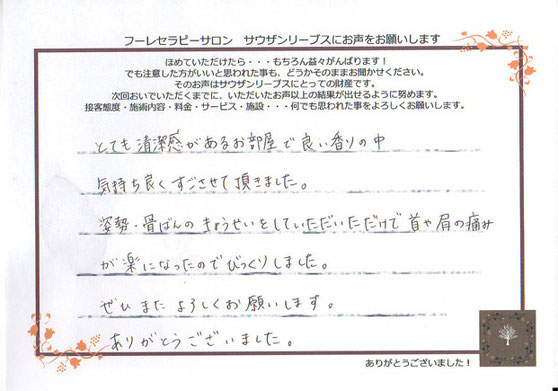 フーレセラピーサロン　サウザンリーブスにお声をお願いします
ほめていただけたら・・・もちろん益々がんばります！
でも注意した方がいいと思われた事も、どうかそのままお聞かせください。
そのお声はサウザンリーブスにとっての財産です。
次回おいでいただくまでに、いただいたお声以上の結果が出せるように努めます。
接客態度・施術内容・料金・サービス・施設・・・何でも思われた事をよろしくお願いします。
とても清潔感があるお部屋で良い香りの中
気持ち良くすごさせて頂きました。
姿勢・骨ばんのきょうせいをしていただいただけで首や肩の痛み
が楽になったのでびっくりしました。
ぜひまたよろしくお願いします。
ありがとうございました。
ありがとうございました！